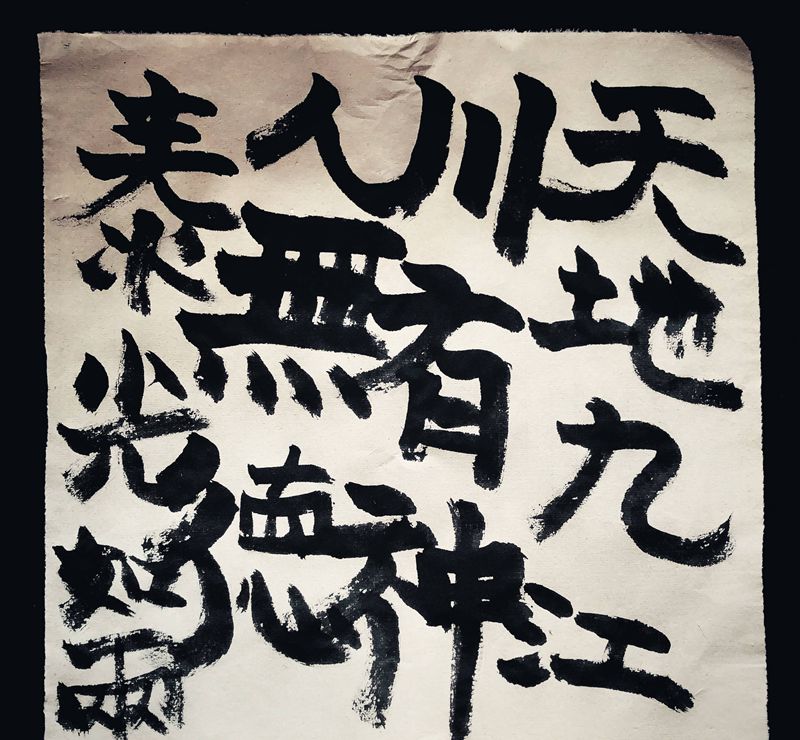 天地九江
川有神
人無悳
泰光如雨